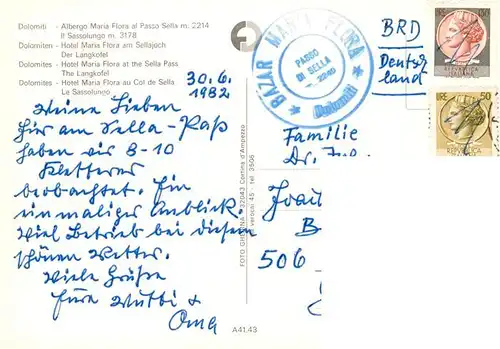 Dolomiti - Albergo Maria Flora al Passo Sella m. 2214
Il Sassolungo m. 3178
Dolomiten - Hotel Maria Flora am Sellajoch
Der Langkofel
Dolomites - Hotel Maria Flora at the Sella Pass
The Langkofel
Dolomites - Hotel Maria Flora au Col de Sella
Le Sassolungo
30.6.
1982
Meine Lieben
hier am Sella-Paß
haben wir 8-10
Kletterer
beobachtet. Ein
einmaliger Anblick.
Viel Betrieb bei diesem
schönen Wetter.
Viele Grüße
Eure Mutti &
Oma
A41.43
FOTO GHEDINA - 32043 Cortina d'Ampezzo
45 - tel. 3506
BAZAR MARIA FLORA
PASSO
DI SELLA
Dolomiti
BRD
Deutsch
land
LIRE 50
Familie
Dr.
B
506